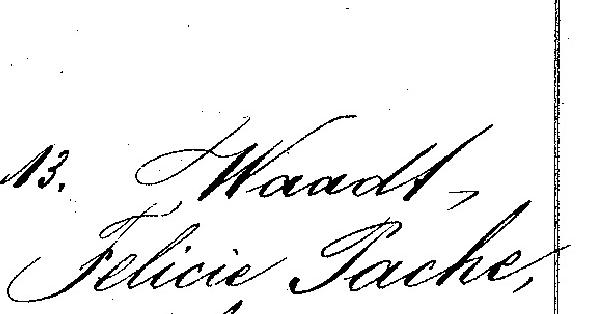 13. Waadt,
Felicie Pache,